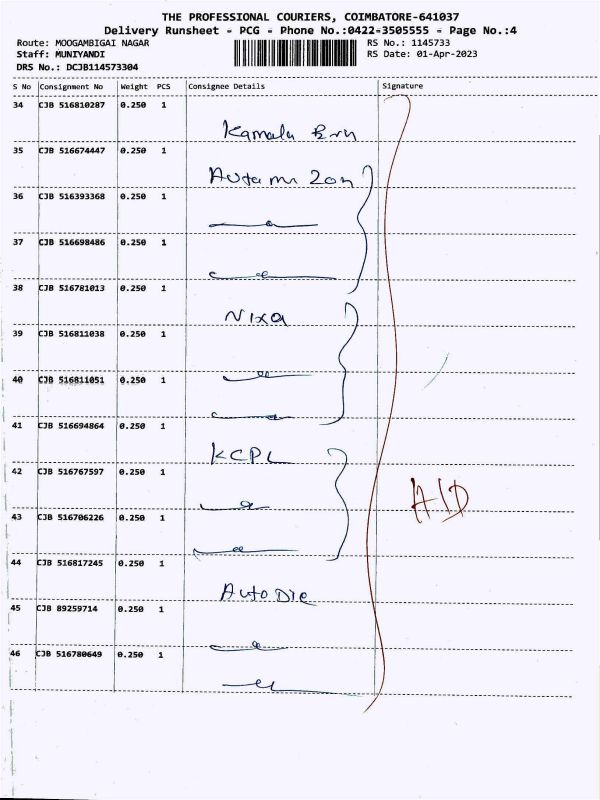 THE PROFESSIONAL COURIERS, COIMBATORE-641037
Delivery Runsheet - PCG - Phone No.:0422-3505555 - Page No.:4
Route: MOOGAMBIGAI NAGAR RS No.: 1145733
Staff: MUNIYANDI RS Date: 01-Apr-2023
DRS No.: DCJB114573304
S No Consignment No Weight PCS Consignee Details Signature
34 CJB 516810287 0.250 1
Kamala
35 CJB 516674447 0.250 1
36 CJB 516393368 0.250 1
37 CJB 516698486 0.250 1
38 CJB 516781013 0.250 1
Nixa
39 CJB 516811038 0.250 1
40 CJB 516811051 0.250 1
41 CJB 516694864 0.250 1
KCPL
42 CJB 516767597 0.250 1
43 CJB 516706226 0.250 1
A/D
44 CJB 516817245 0.250 1
Auto Die
45 CJB 89259714 0.250 1
46 CJB 516780649 0.250 1